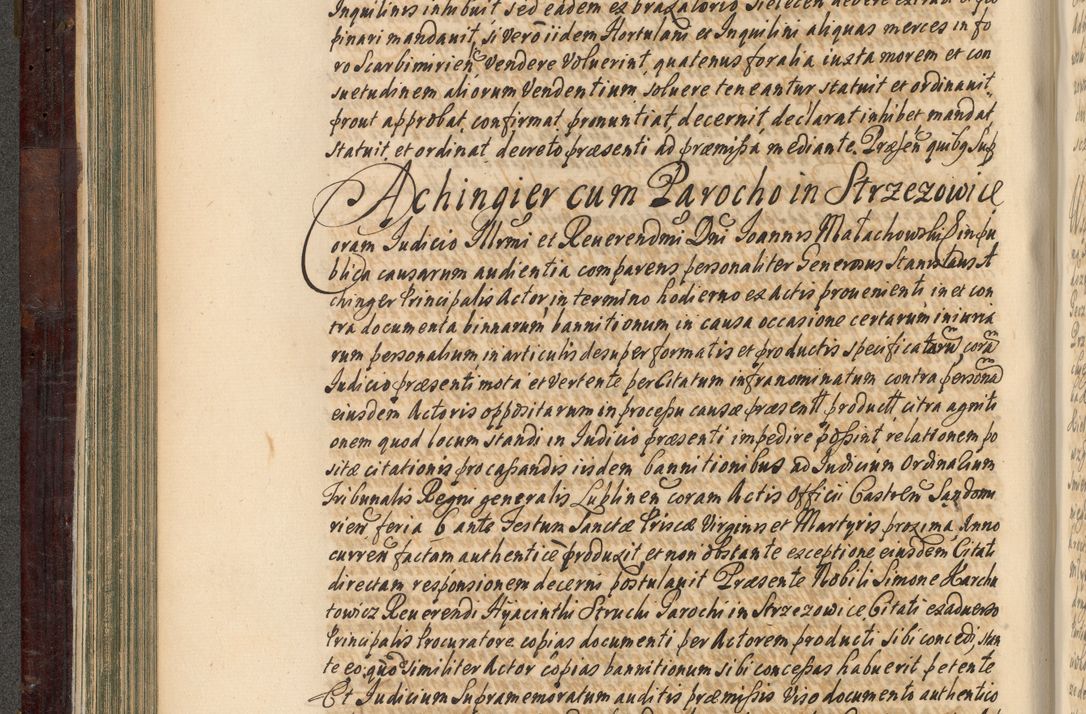 Inquilinis inhibuit sed eadem ex braxatorio
pinari mandauit, si verò iidem Hortulani et Inquilini aliquas merces in fo
ro Scarbimirien̄ Vendere Voluerint quatenus foralia iuxta morem et con
suetudinem aliorum Vendentium soluere teneantur statuit et ordinauit
prout approbat, confirmat, pronuntiat, decernit, declarat inhibet mandat
statuit, et ordinat decreto præsenti ad præmissa mediante. Præsen̄ quibg Sup
Achingier cum Parocho in Strzezowice
Coram Judicio Illrmi et Reuerendmi Dni Joannis Małachowski in pu
blica causarum audientia comparens personaliter Generosus Stanislaus A
chinger Principalis Actor, in termino hodierno ex Actis proueniendi in et con
tra documenta binnarum bannitionum in causa occasione certarum iniuria
rum personalium in articulis desuper formatis et productis specificatarū corā
Judicio præsenti mota et vertente per Citatum infranominatum contra personā
eiusdem Actoris oppositarum in processu causæ præsentt productt citra agniti
onem quod locum standi in Judicio præsenti impedire possint relationem po
sitæ citationis pro cassandis iisdem bannitionibus ad Judicium Ordinarium
Tribunalis Regni generalis Lublinen̄ coram Actis Officii Castren̄ Sandomi
rien̄, feria 6 ante Festum Sanctæ Priscæ Virginis et Martyris proxima Anno
curren̄ factam authenticè produxit, et non obstante exceptione eiusdem Citati
directam responsionem decerni postulauit Præsente Nobili Simone Karchu
towicz Reuerendi Hyacinthi Struchi Parochi in Strzezowice Citati ex aduerso
Principalis Procuratore copias documenti per Actorem producti sibi concedi, stan
te eo, quō similiter Actor copias bannitionum sibi concessas habuerit petente
Et Judicium Supramemoratum auditis præmissis Viso documento authentico